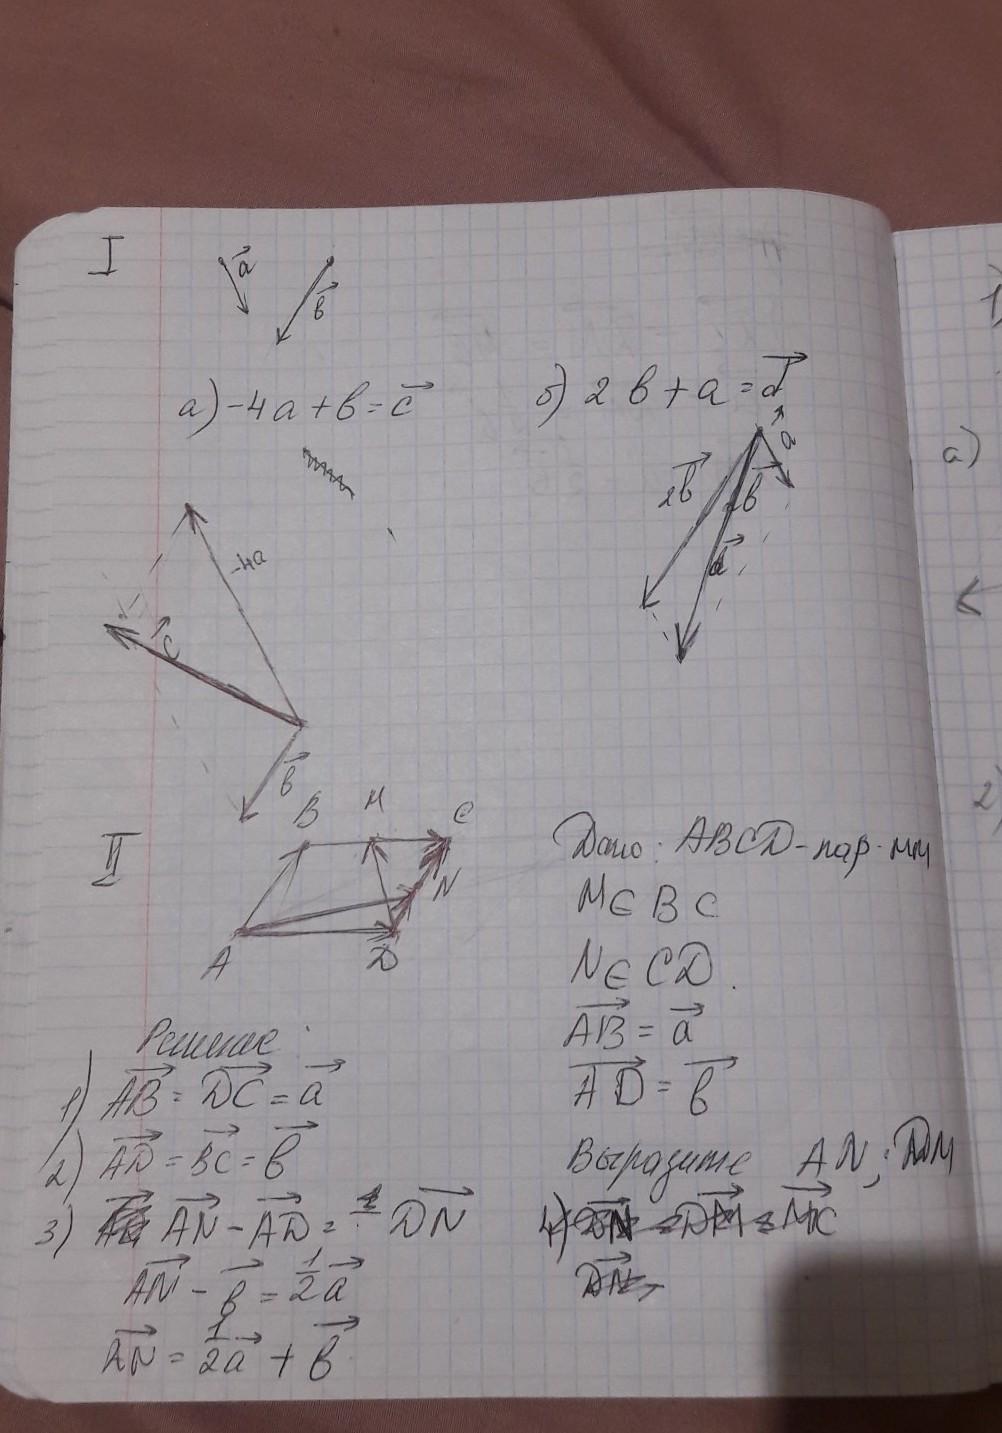 I
a⃗
b⃗
а) -4a + b = c⃗
б) 2b + a = d⃗
-4a
c⃗
b⃗
2b⃗
a⃗
b⃗
d⃗
II
B M C
N
A D
Дано: ABCD - пар-мм
M ∈ BC
N ∈ CD.
AB⃗ = a⃗
AD⃗ = b⃗
Выразите AN; DM
Решение:
1) AB⃗ = DC⃗ = a⃗
2) AD⃗ = BC⃗ = b⃗
3) AN⃗ - AD⃗ = DN⃗
AN⃗ - b⃗ = 1/2 a⃗
AN⃗ = 1/2 a⃗ + b⃗
1)
а)
2)